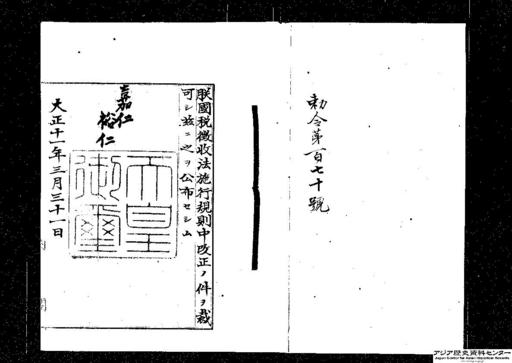 勅令第百七十號
朕國税徴收法施行規則中改正ノ件ヲ裁
可シ茲ニ之ヲ公布セシム
嘉仁
裕仁
天皇
御璽
大正十一年三月三十一日
内閣
アジア歴史資料センター
Japan Center for Asian Historical Records